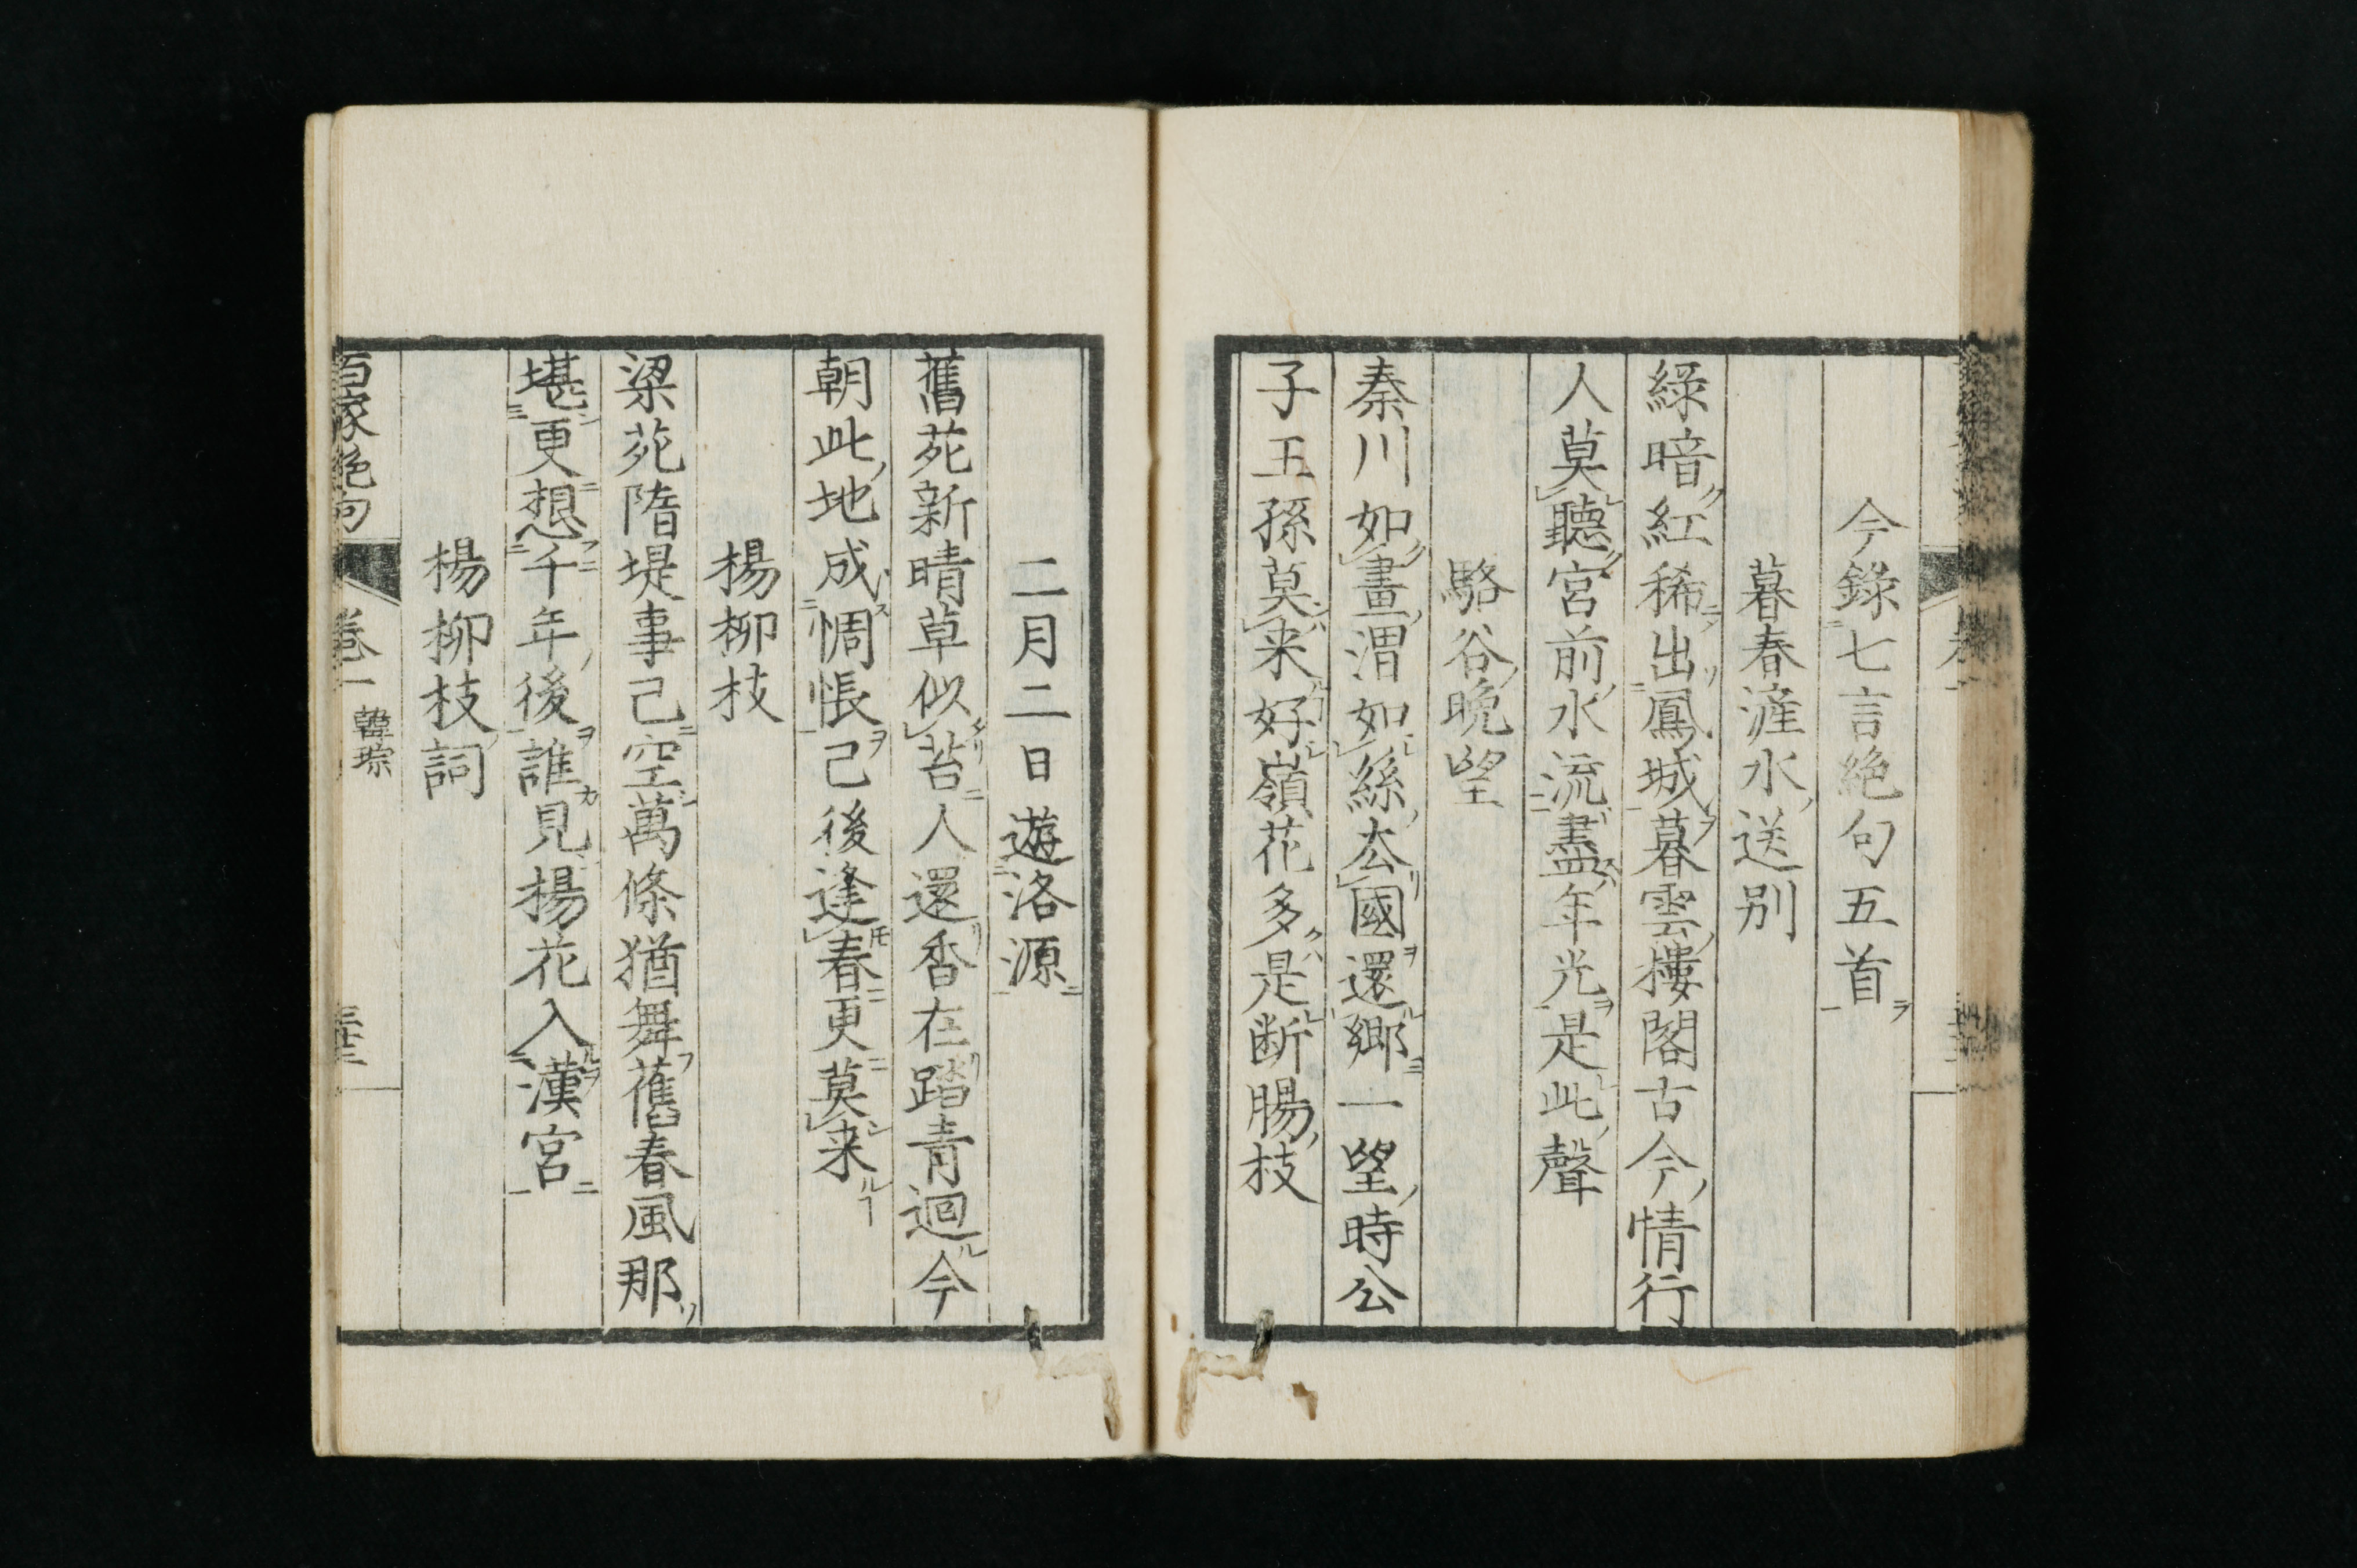 今錄七言絶句五首
暮春滻水送别
綠暗紅稀出鳳城暮雲樓閣古今情行
人莫聽宮前水流盡年光是此聲
駱谷晚望
秦川如畫渭如絲去國還鄉一望時公
子王孫莫来好嶺花多是断腸枝
二月二日遊洛源
舊苑新晴草似苔人還香在踏青迴今
朝此地成惆悵己後逢春更莫来
楊柳枝
梁苑隋堤事己空萬條猶舞舊春風那
堪更想千年後誰見楊花入漢宮
楊柳枝詞
百家絶句
卷一
韓琮